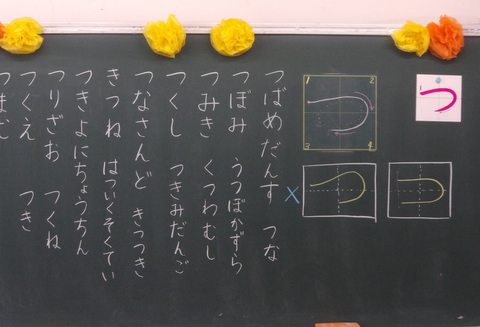 つばめだんす つな
つぼみ うつぼかずら
つみき くつわむし
つくし つきみだんご
つなさんど きつつき
きつね はついくそくてい
つきよにちょうちん
つりざお つくね
つくえ つき
つまむ
1 2
3 4
つ
×